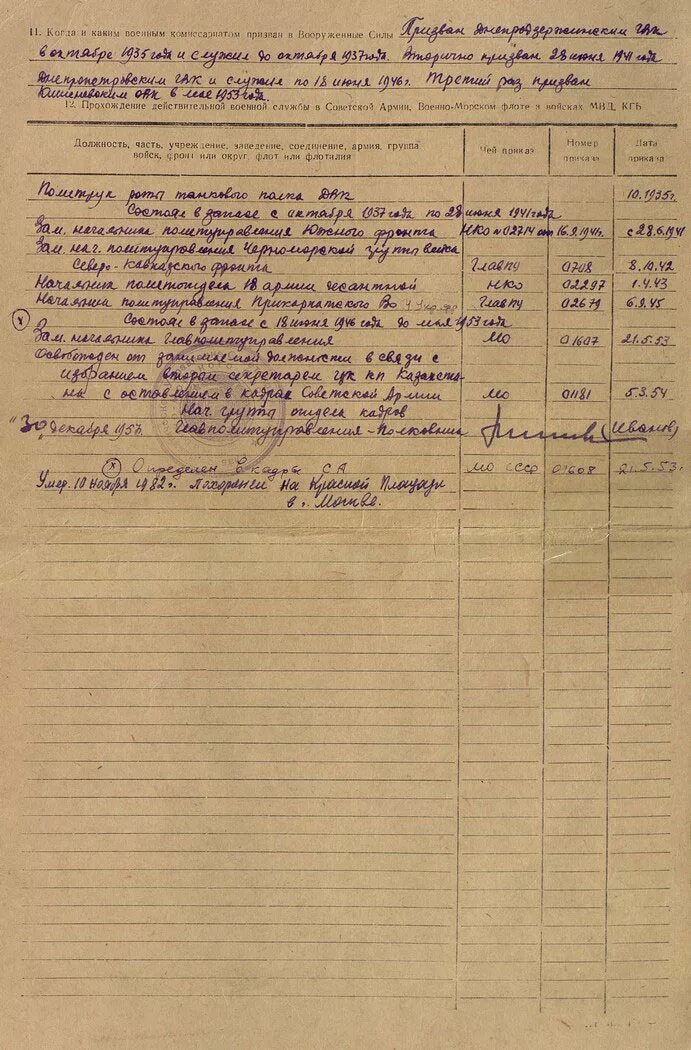 11. Когда и каким военным комиссариатом призван в Вооруженные Силы Призван Днепродзержинским ГВК
в октябре 1935 года и служил до октября 1937 года. Вторично призван 28 июня 1941 года
Днепропетровским ГВК и служил по 18 июня 1946г. Третий раз призван
Кишеневским ОВК в мае 1953 года.
12. Прохождение действительной военной службы в Советской Армии, Военно-Морском флоте и войсках МВД, КГБ
Должность, часть, учреждение, заведение, соединение, армия, группа войск, фронт или округ, флот или флотилия
Чей приказ
Номер приказа
Дата приказа
Политрук роты танкового полка ДВК 10.1935г.
Состоял в запасе с октября 1937 года по 28 июня 1941 года
Зам. начальника политуправления Южного фронта НКО №02714 от 16.9.1941г. с 28.6.1941
Зам. нач. политуправления Черноморской группы войск
Северо-Кавказского фронта ГлавПУ 0708 8.10.42
Начальник политотдела 18 армии десантной НКО 02297 1.4.43
Начальник политуправления Прикарпатского ВО ГлавПУ 02679 6.9.45
Состоял в запасе с 18 июня 1946 года до мая 1953 года
Зам. начальника Главполитуправления МО 01607 21.5.53
Освобожден от занимаемой должности в связи с
избранием вторым секретарем ЦК КП Казахста-
на с оставлением в кадрах Советской Армии МО 01181 5.3.54
Нач. группы отдела кадров
"30" декабря 195 Главполитуправления - Полковник (Иванов)
(х) Определен в кадры СА МО СССР 01608 21.5.53г.
Умер 10 ноября 1982г. Похоронен на Красной Площади
в г. Москве.